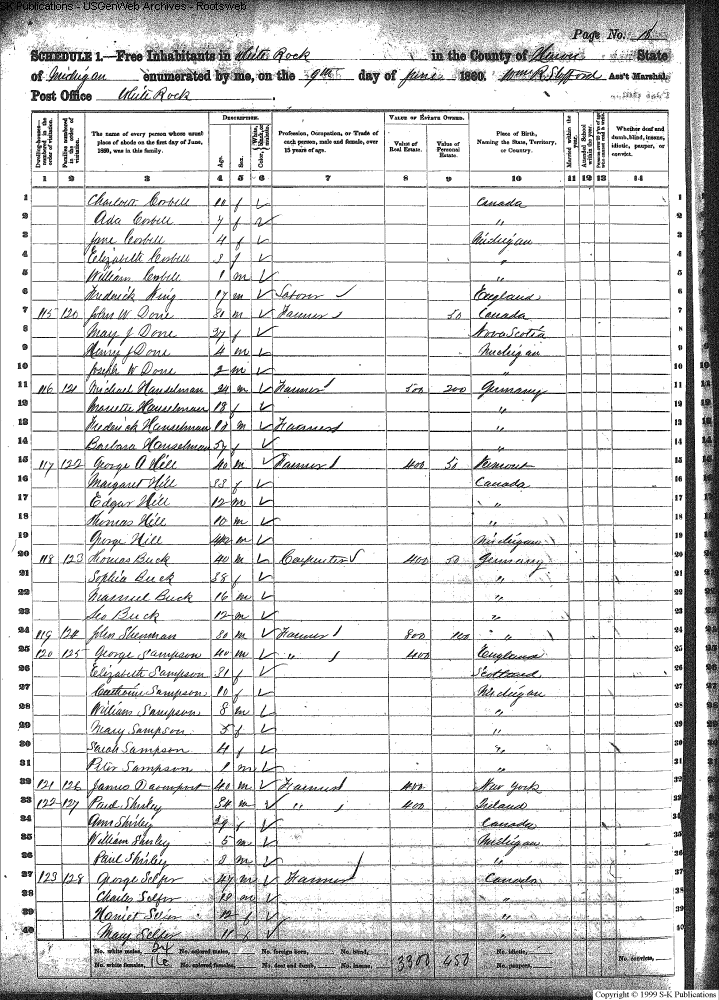 S-K Publications - USGenWeb Archives - Rootsweb
Page No.
SCHEDULE 1.—Free Inhabitants in White Rock in the County of Huron State
of Michigan enumerated by me, on the 9th day of June 1860. Wm R. Ass't Marshal.
Post Office White Rock
Dwelling-houses—numbered in the order of visitation.
Families numbered in the order of visitation.
The name of every person whose usual place of abode on the first day of June, 1860, was in this family.
DESCRIPTION.
Age.
Sex.
Color, White, black, or mulatto.
Profession, Occupation, or Trade of each person, male and female, over 15 years of age.
VALUE OF ESTATE OWNED.
Value of Real Estate.
Value of Personal Estate.
Place of Birth, Naming the State, Territory, or Country.
Married within the year.
Attended School within the year.
Whether deaf and dumb, blind, insane, idiotic, pauper, or convict.
1 2 3 4 5 6 7 8 9 10 11 12 13 14
1 Corbell 10 f Canada 1
2 Ada Corbell 7 f " 2
3 Jane Corbell 4 f Michigan 3
4 Elizabeth Corbell 3 f " 4
5 William Corbell 1 m " 5
6 Frederick Wing 17 m Laborer England 6
7 115 120 John W Done 31 m Farmer 50 Canada 7
8 Mary J Done 27 f Nova Scotia 8
9 Henry J Done 4 m Michigan 9
10 Joseph W Done 2 m " 10
11 116 121 Michael Hanselman 24 m Farmer 500 200 Germany 11
12 Hanselman 18 f " 12
13 Frederick Hanselman m Farmer " 13
14 Barbara Hanselman 57 f " 14
15 117 122 George A Hill 40 m Farmer 400 50 Vermont 15
16 Margaret Hill 33 f Canada 16
17 Edgar Hill 12 m " 17
18 Thomas Hill 10 m " 18
19 George Hill m Michigan 19
20 118 123 Thomas Buck 40 m Carpenter 400 50 Germany 20
21 Sophia Buck 38 f " 21
22 Buck 16 m " 22
23 Geo Buck 12 m " 23
24 119 124 John Sherman 30 m Farmer 800 100 " 24
25 120 125 George Sampson 40 m " 400 England 25
26 Elizabeth Sampson 31 f Scotland 26
27 Catherine Sampson 10 f Michigan 27
28 William Sampson 8 m " 28
29 Mary Sampson 5 f " 29
30 Sarah Sampson 4 f " 30
31 Peter Sampson 1 m " 31
32 121 126 James Davenport 40 m Farmer 400 New York 32
33 122 127 Paul Shirley 34 m " 400 Ireland 33
34 Ann Shirley 29 f Canada 34
35 William Shirley 5 m Michigan 35
36 Paul Shirley 3 m " 36
37 123 128 George Selfer 47 m Farmer Canada 37
38 Charles Selfer m " 38
39 Harriet Selfer 12 f " 39
40 Mary Selfer 11 f " 40
No. white males, 24 No. colored males, No. foreign born, No. blind, No. idiotic, No. convicts,
No. white females, 16 No. colored females, No. deaf and dumb, No. insane, 3300 450 No. paupers,
Copyright © 1999 S-K Publications